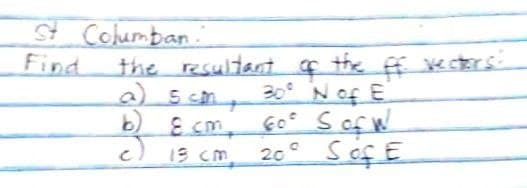 St Columban:
Find the resultant of the ff vectors:
a) 5 cm, 30° N of E
b) 8 cm, 60° S of W
c) 13 cm, 20° S of E